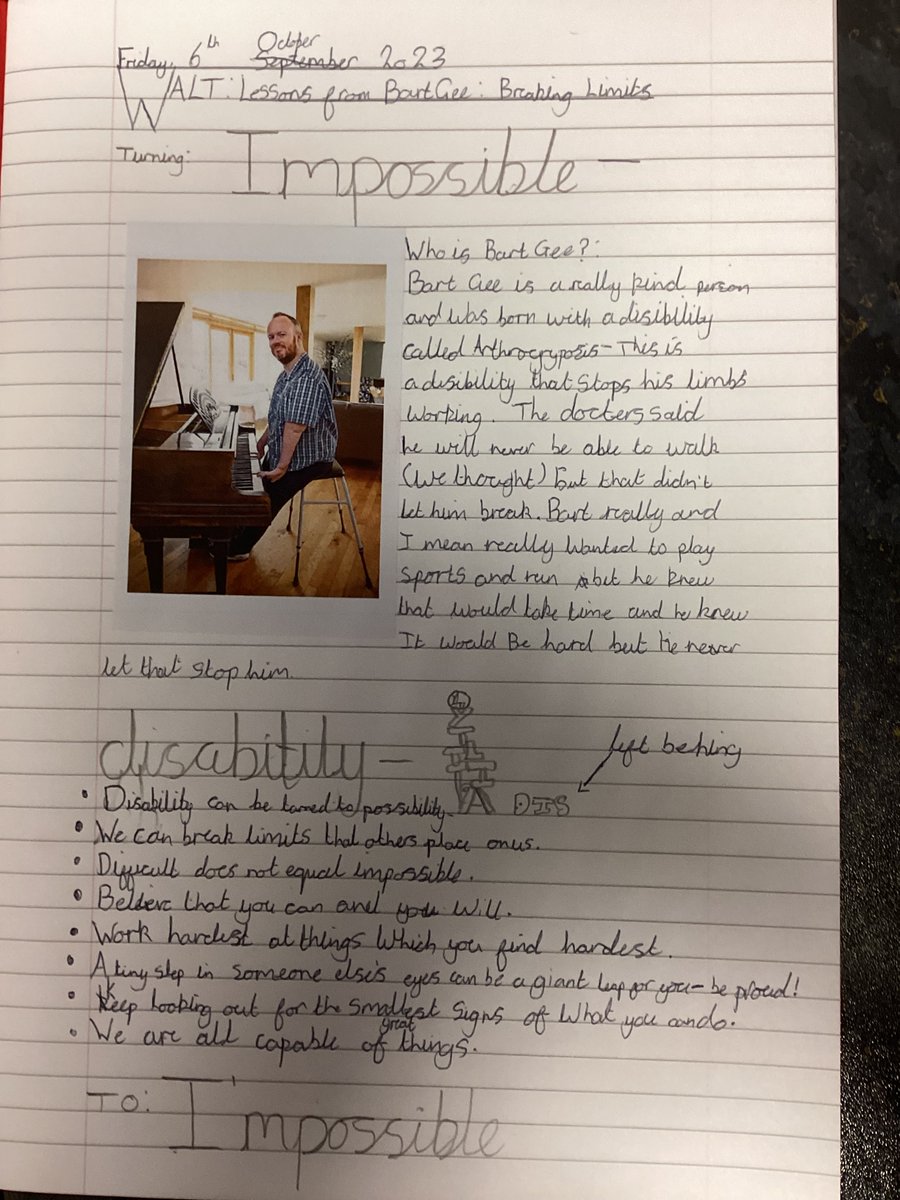 Friday, 6th October September 2023
WALT: Lessons from Bart Gee: Breaking Limits
Turning: Impossible -
Who is Bart Gee?:
Bart Gee is a really kind person
and was born with a disibility
called Arthrocryposis - This is
a disibility that stops his limbs
working. The docters said
he will never be able to walk
(we thought) but that didn't
let him break. Bart really and
I mean really wanted to play
sports and run but he knew
that would take time and he knew
It would Be hard but he never
let that stop him.
disability -
left behing
DIS
• Disability can be turned to possibility.
• We can break limits that others place on us.
• Difficult does not equal impossible.
• Believe that you can and you will.
• Work hardest at things which you find hardest.
• A tiny step in someone else's eyes can be a giant leap for you - be proud!
• Keep looking out for the smallest signs of what you can do.
• We are all capable of great things.
To: I'mpossible